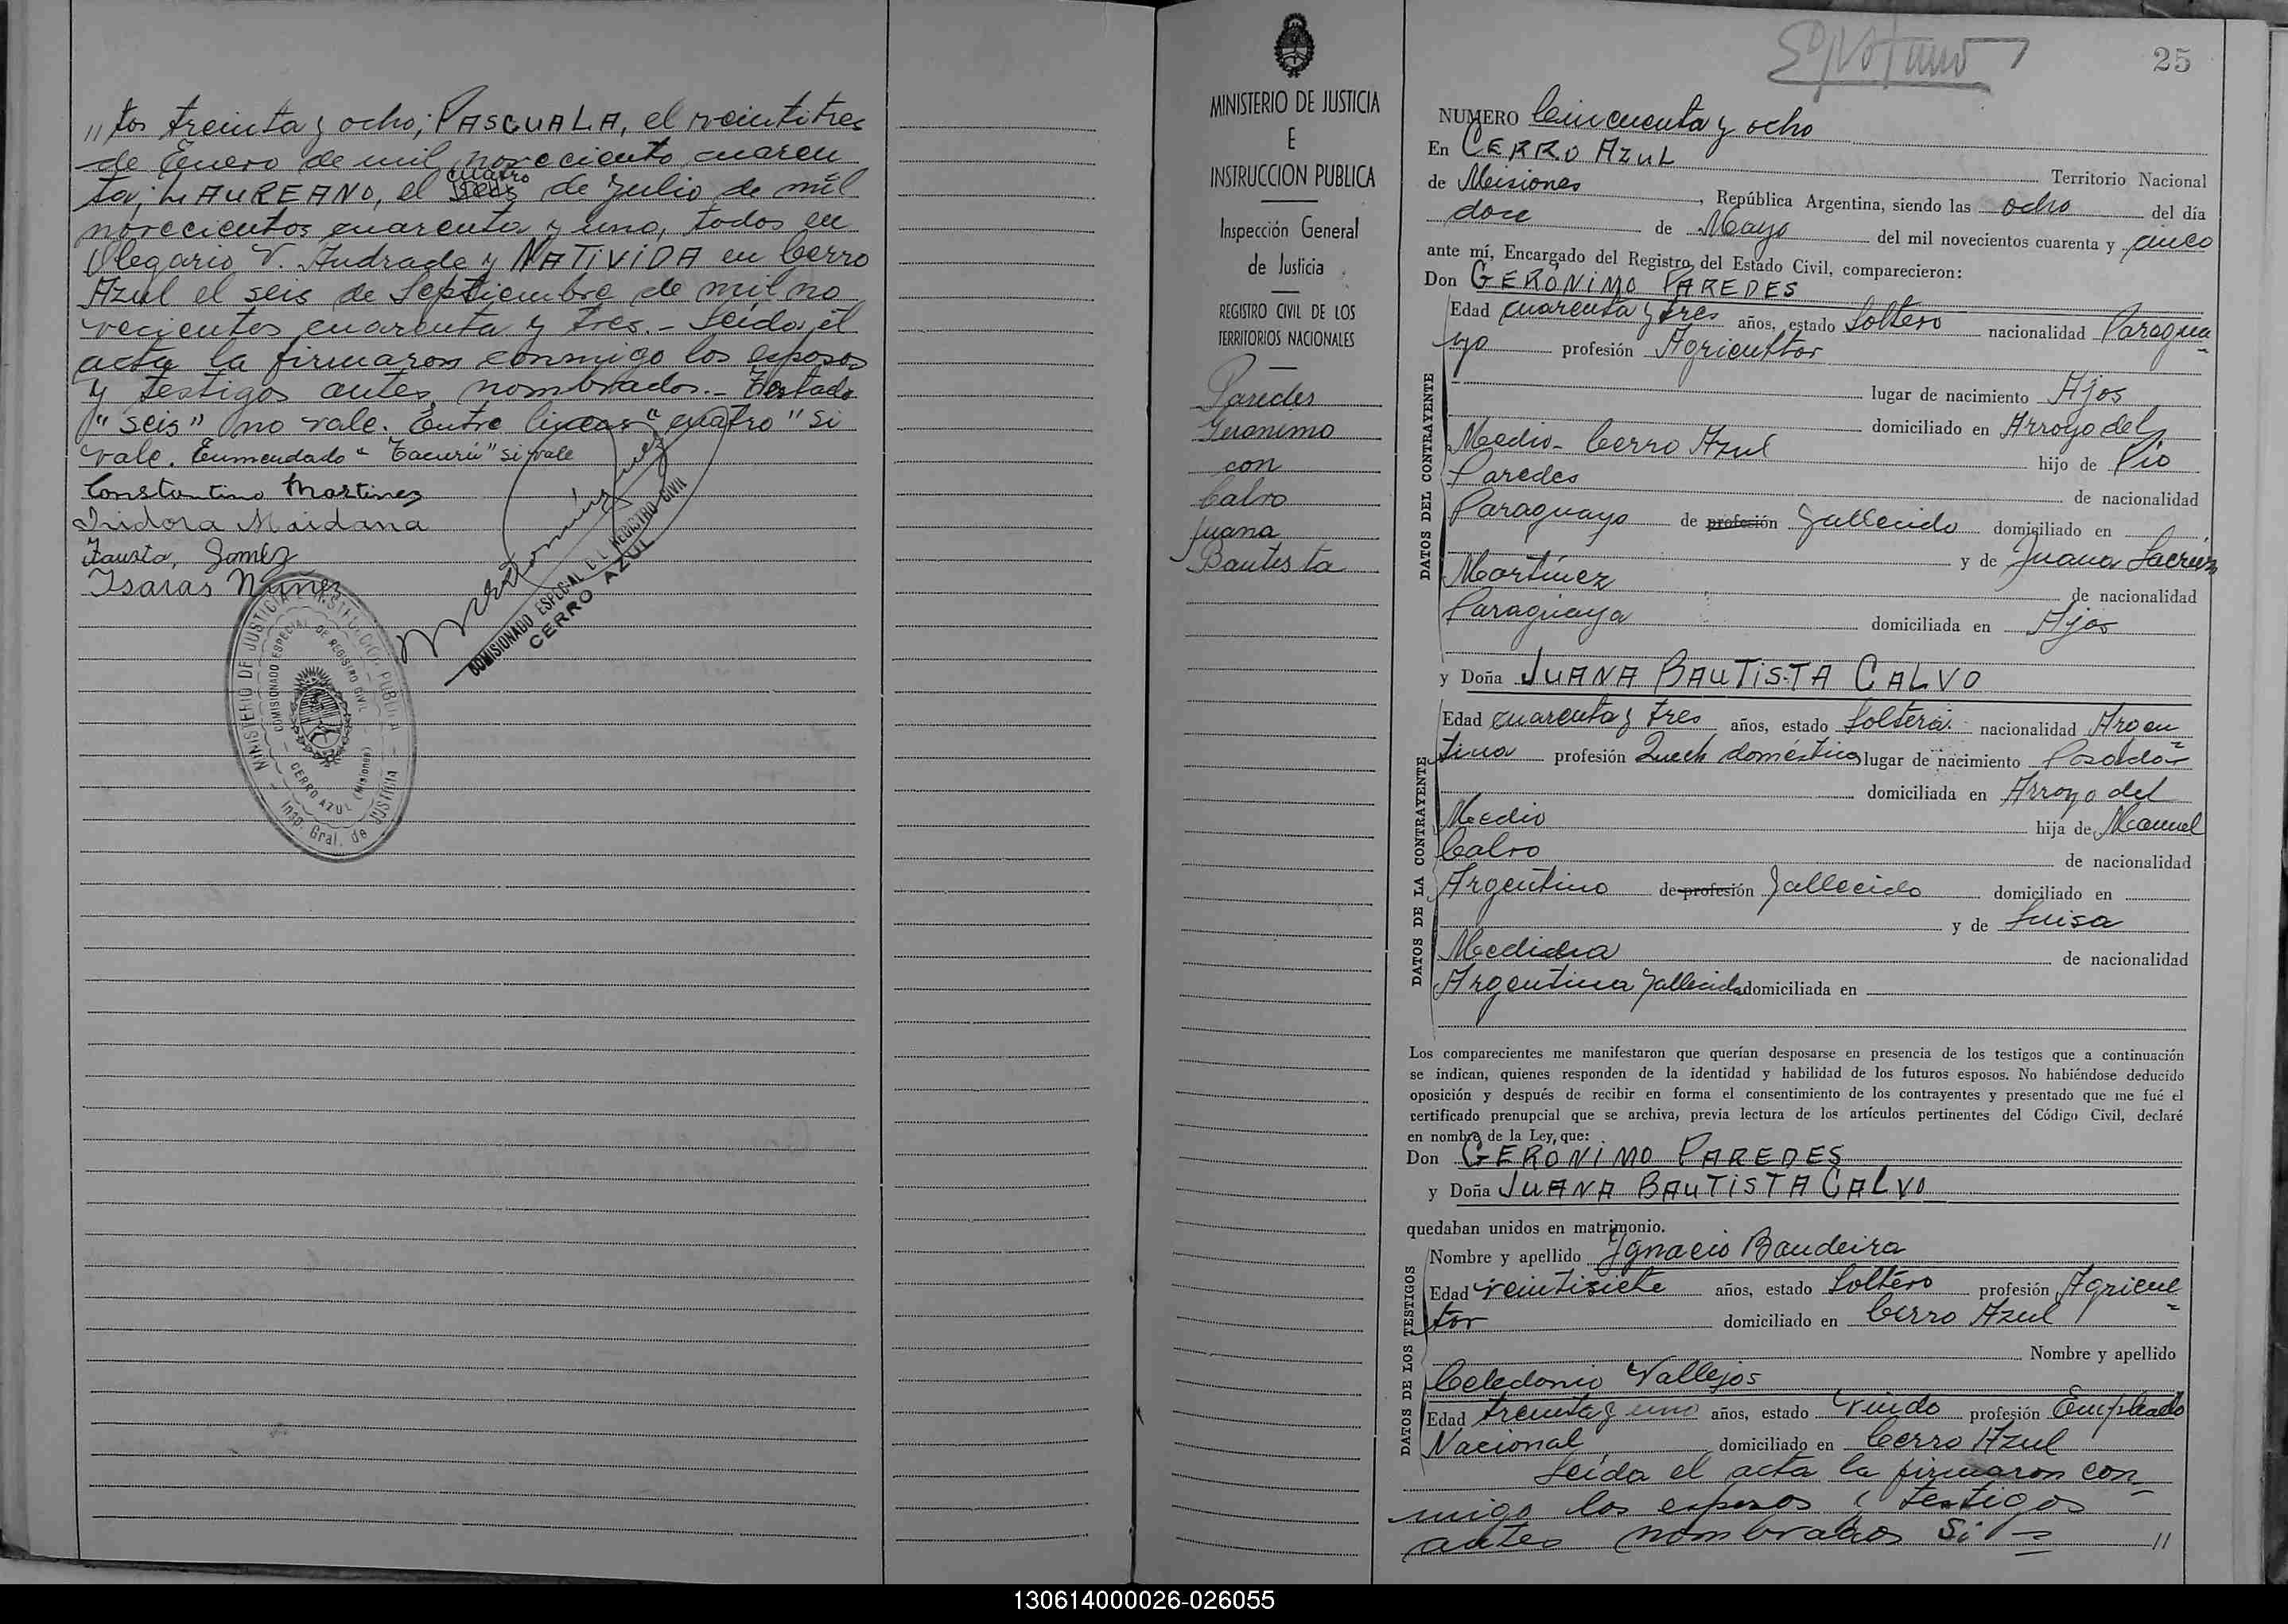 " tos treinta y ocho; PASCUALA, el veintitres
de Enero de mil novecientos cuaren
ta; LAUREANO, el seis cuatro de Julio de mil
novecientos cuarenta y uno, todos en
Olegario V. Andrade y NATIVIDA en Cerro
Azul el seis de Septiembre de mil no
vecientos cuarenta y tres.- Leída el
acta la firmaron conmigo los esposos
y testigos antes nombrados.- Testado
"seis" no vale. Entre lineas "cuatro" si
vale. Enmendado "Tacurú" si vale
Constantino Martinez
Isidora Maidana
Fausto, Gomez
Isaias Nuñez
COMISIONADO ESPECIAL DEL REGISTRO CIVIL
CERRO AZUL
MINISTERIO DE JUSTICIA E INSTRUCCION PUBLICA
Insp. Gral. de Justicia
COMISIONADO ESPECIAL DE REGISTRO CIVIL
CERRO AZUL (Misiones)
MINISTERIO DE JUSTICIA
E
INSTRUCCION PUBLICA
Inspección General
de Justicia
REGISTRO CIVIL DE LOS
TERRITORIOS NACIONALES
Paredes
Geronimo
con
Calvo
Juana
Bautista
25
NUMERO Cincuenta y ocho
En CERRO AZUL Territorio Nacional
de Misiones, República Argentina, siendo las ocho del día
doce de Mayo del mil novecientos cuarenta y cinco
ante mí, Encargado del Registro del Estado Civil, comparecieron:
Don GERÓNIMO PAREDES
DATOS DEL CONTRAYENTE
Edad cuarenta y tres años, estado Soltero nacionalidad Paragua
yo profesión Agricultor
lugar de nacimiento Ajos
domiciliado en Arroyo del
Medio - Cerro Azul hijo de Pio
Paredes de nacionalidad
Paraguayo de profesión fallecido domiciliado en
y de Juana
Martínez de nacionalidad
Paraguaya domiciliada en Ajos
y Doña JUANA BAUTISTA CALVO
DATOS DE LA CONTRAYENTE
Edad cuarenta y tres años, estado Soltera nacionalidad Argen
tina profesión Queh. domésticos lugar de nacimiento Posadas
domiciliada en Arroyo del
Medio hija de Manuel
Calvo de nacionalidad
Argentino de profesión fallecido domiciliado en
y de Luisa
de nacionalidad
Argentina fallecida domiciliada en
Los comparecientes me manifestaron que querían desposarse en presencia de los testigos que a continuación
se indican, quienes responden de la identidad y habilidad de los futuros esposos. No habiéndose deducido
oposición y después de recibir en forma el consentimiento de los contrayentes y presentado que me fué el
certificado prenupcial que se archiva, previa lectura de los artículos pertinentes del Código Civil, declaré
en nombre de la Ley, que:
Don GERÓNIMO PAREDES
y Doña JUANA BAUTISTA CALVO
quedaban unidos en matrimonio.
DATOS DE LOS TESTIGOS
Nombre y apellido Ignacio Bandeira
Edad veintisiete años, estado Soltero profesión Agricul
tor domiciliado en Cerro Azul
Nombre y apellido
Celedonio Vallejos
Edad treinta y uno años, estado Viudo profesión Empleado
Nacional domiciliado en Cerro Azul
Leída el acta la firmaron con
migo los esposos y testigos
antes nombrados si = "
130614000026-026055